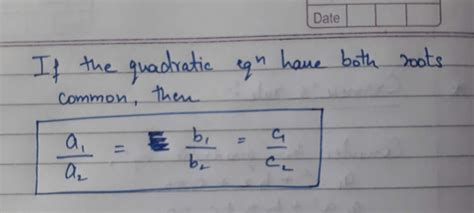 Date
If the quadratic eqn have both roots
common, then
a₁/a₂ = b₁/b₂ = c₁/c₂